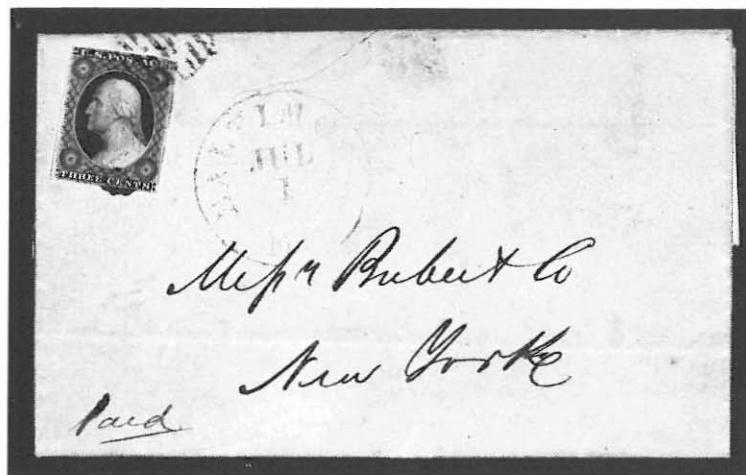 U.S. POSTAGE
THREE CENTS
JUL
1
Messrs
New York
Paid